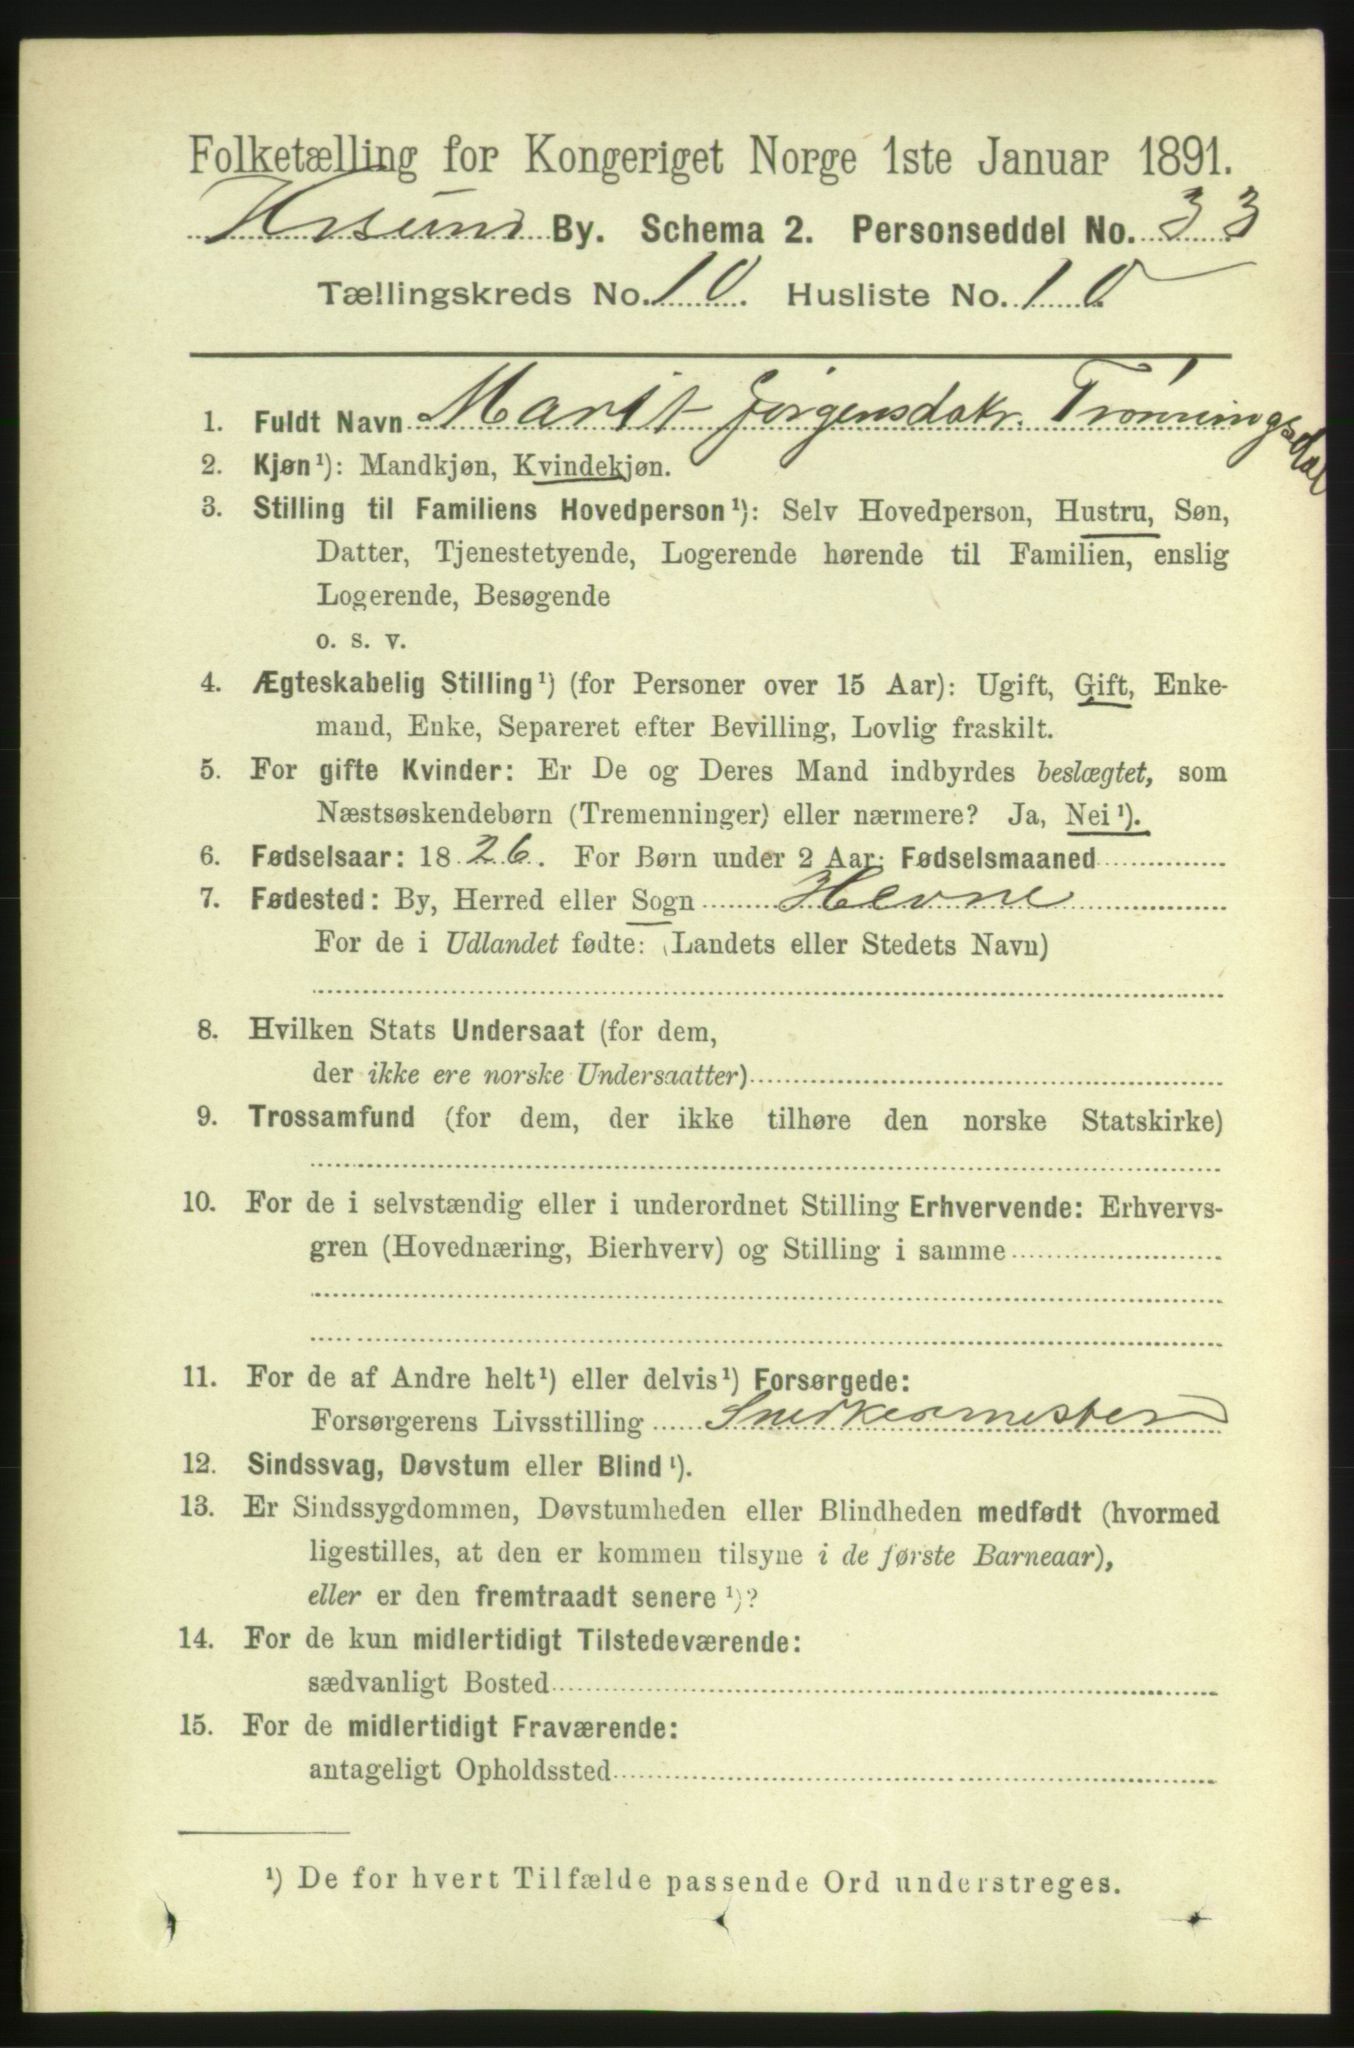 Folketælling for Kongeriget Norge 1ste Januar 1891.
Krsund By. Schema 2. Personseddel No. 33
Tællingskreds No. 10. Husliste No. 10
1. Fuldt Navn Marit Jørgensdatr. Trønningsdal
2. Kjøn¹): Mandkjøn, Kvindekjøn.
3. Stilling til Familiens Hovedperson¹): Selv Hovedperson, Hustru, Søn,
Datter, Tjenestetyende, Logerende hørende til Familien, enslig
Logerende, Besøgende
o. s. v.
4. Ægteskabelig Stilling¹) (for Personer over 15 Aar): Ugift, Gift, Enke-
mand, Enke, Separeret efter Bevilling, Lovlig fraskilt.
5. For gifte Kvinder: Er De og Deres Mand indbyrdes beslægtet, som
Næstsøskendebørn (Tremenninger) eller nærmere? Ja, Nei¹).
6. Fødselsaar: 1826. For Børn under 2 Aar: Fødselsmaaned
7. Fødested: By, Herred eller Sogn Hevne
For de i Udlandet fødte: (Landets eller Stedets Navn)
8. Hvilken Stats Undersaat (for dem,
der ikke ere norske Undersaatter)
9. Trossamfund (for dem, der ikke tilhøre den norske Statskirke)
10. For de i selvstændig eller i underordnet Stilling Erhvervende: Erhvervs-
gren (Hovednæring, Bierhverv) og Stilling i samme
11. For de af Andre helt¹) eller delvis¹) Forsørgede:
Forsørgerens Livsstilling Snedkermester
12. Sindssvag, Døvstum eller Blind¹).
13. Er Sindssygdommen, Døvstumheden eller Blindheden medfødt (hvormed
ligestilles, at den er kommen tilsyne i de første Barneaar),
eller er den fremtraadt senere¹)?
14. For de kun midlertidigt Tilstedeværende:
sædvanligt Bosted
15. For de midlertidigt Fraværende:
antageligt Opholdssted
¹) De for hvert Tilfælde passende Ord understreges.